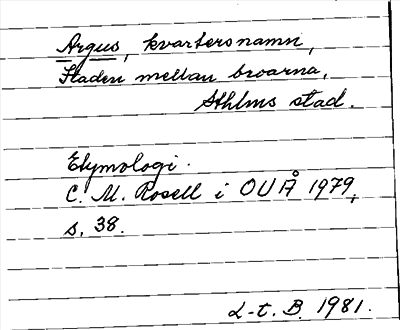 Argus, kvartersnamn,
Staden mellan broarna,
Sthlms stad.
Etymologi.
C. M. Rosell i OUÅ 1979,
s. 38.
L-t. B. 1981.